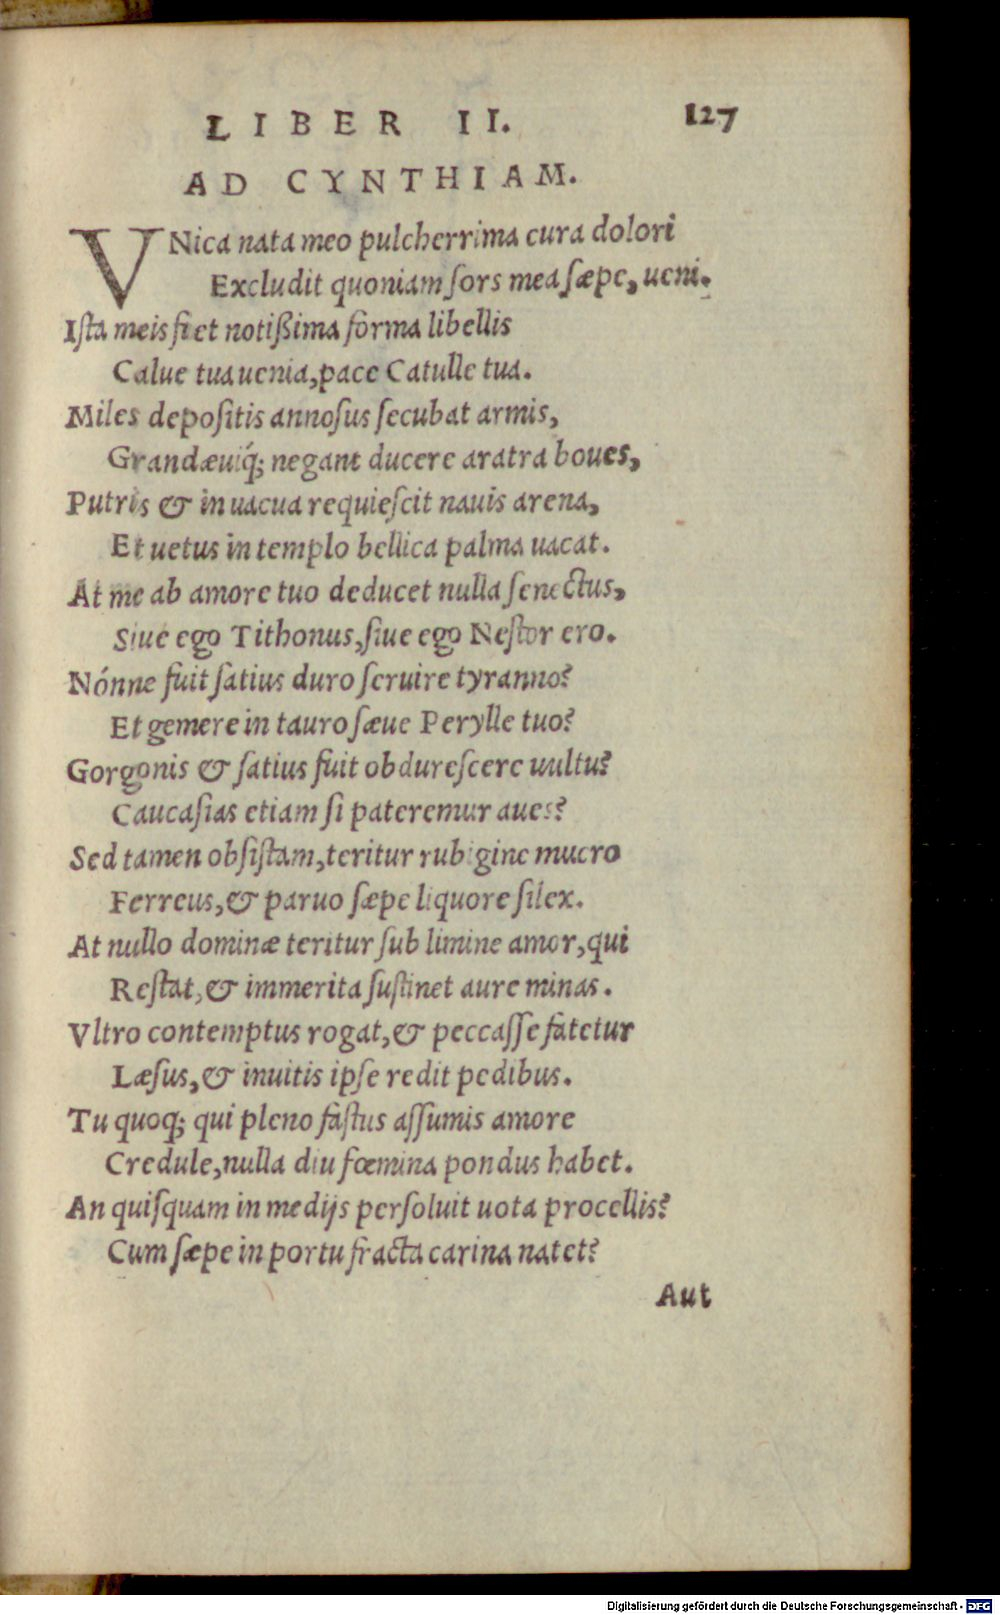 LIBER II. 127
AD CYNTHIAM.
VNica nata meo pulcherrima cura dolori
Excludit quoniam ſors mea ſæpe, ueni.
Iſta meis fiet notißima forma libellis
Calue tua uenia, pace Catulle tua.
Miles depoſitis annoſus ſecubat armis,
Grandæuiq́; negant ducere aratra boues,
Putris & in uacua requieſcit nauis arena,
Et uetus in templo bellica palma uacat.
At me ab amore tuo deducet nulla ſenectus,
Siue ego Tithonus, ſiue ego Neſtor ero.
Nónne fuit ſatius duro ſeruire tyranno?
Et gemere in tauro ſæue Perylle tuo?
Gorgonis & ſatius fuit obdureſcere uultu?
Caucaſias etiam ſi pateremur aues?
Sed tamen obſiſtam, teritur rubigine mucro
Ferreus, & paruo ſæpe liquore ſilex.
At nullo dominæ teritur ſub limine amor, qui
Reſtat, & immerita ſuſtinet aure minas.
Vltro contemptus rogat, & peccaſſe fatetur
Læſus, & inuitis ipſe redit pedibus.
Tu quoq; qui pleno faſtus aſſumis amore
Credule, nulla diu fœmina pondus habet.
An quiſquam in medijs perſoluit uota procellis?
Cum ſæpe in portu fracta carina natet?
Aut
Digitalisierung gefördert durch die Deutsche Forschungsgemeinschaft - DFG